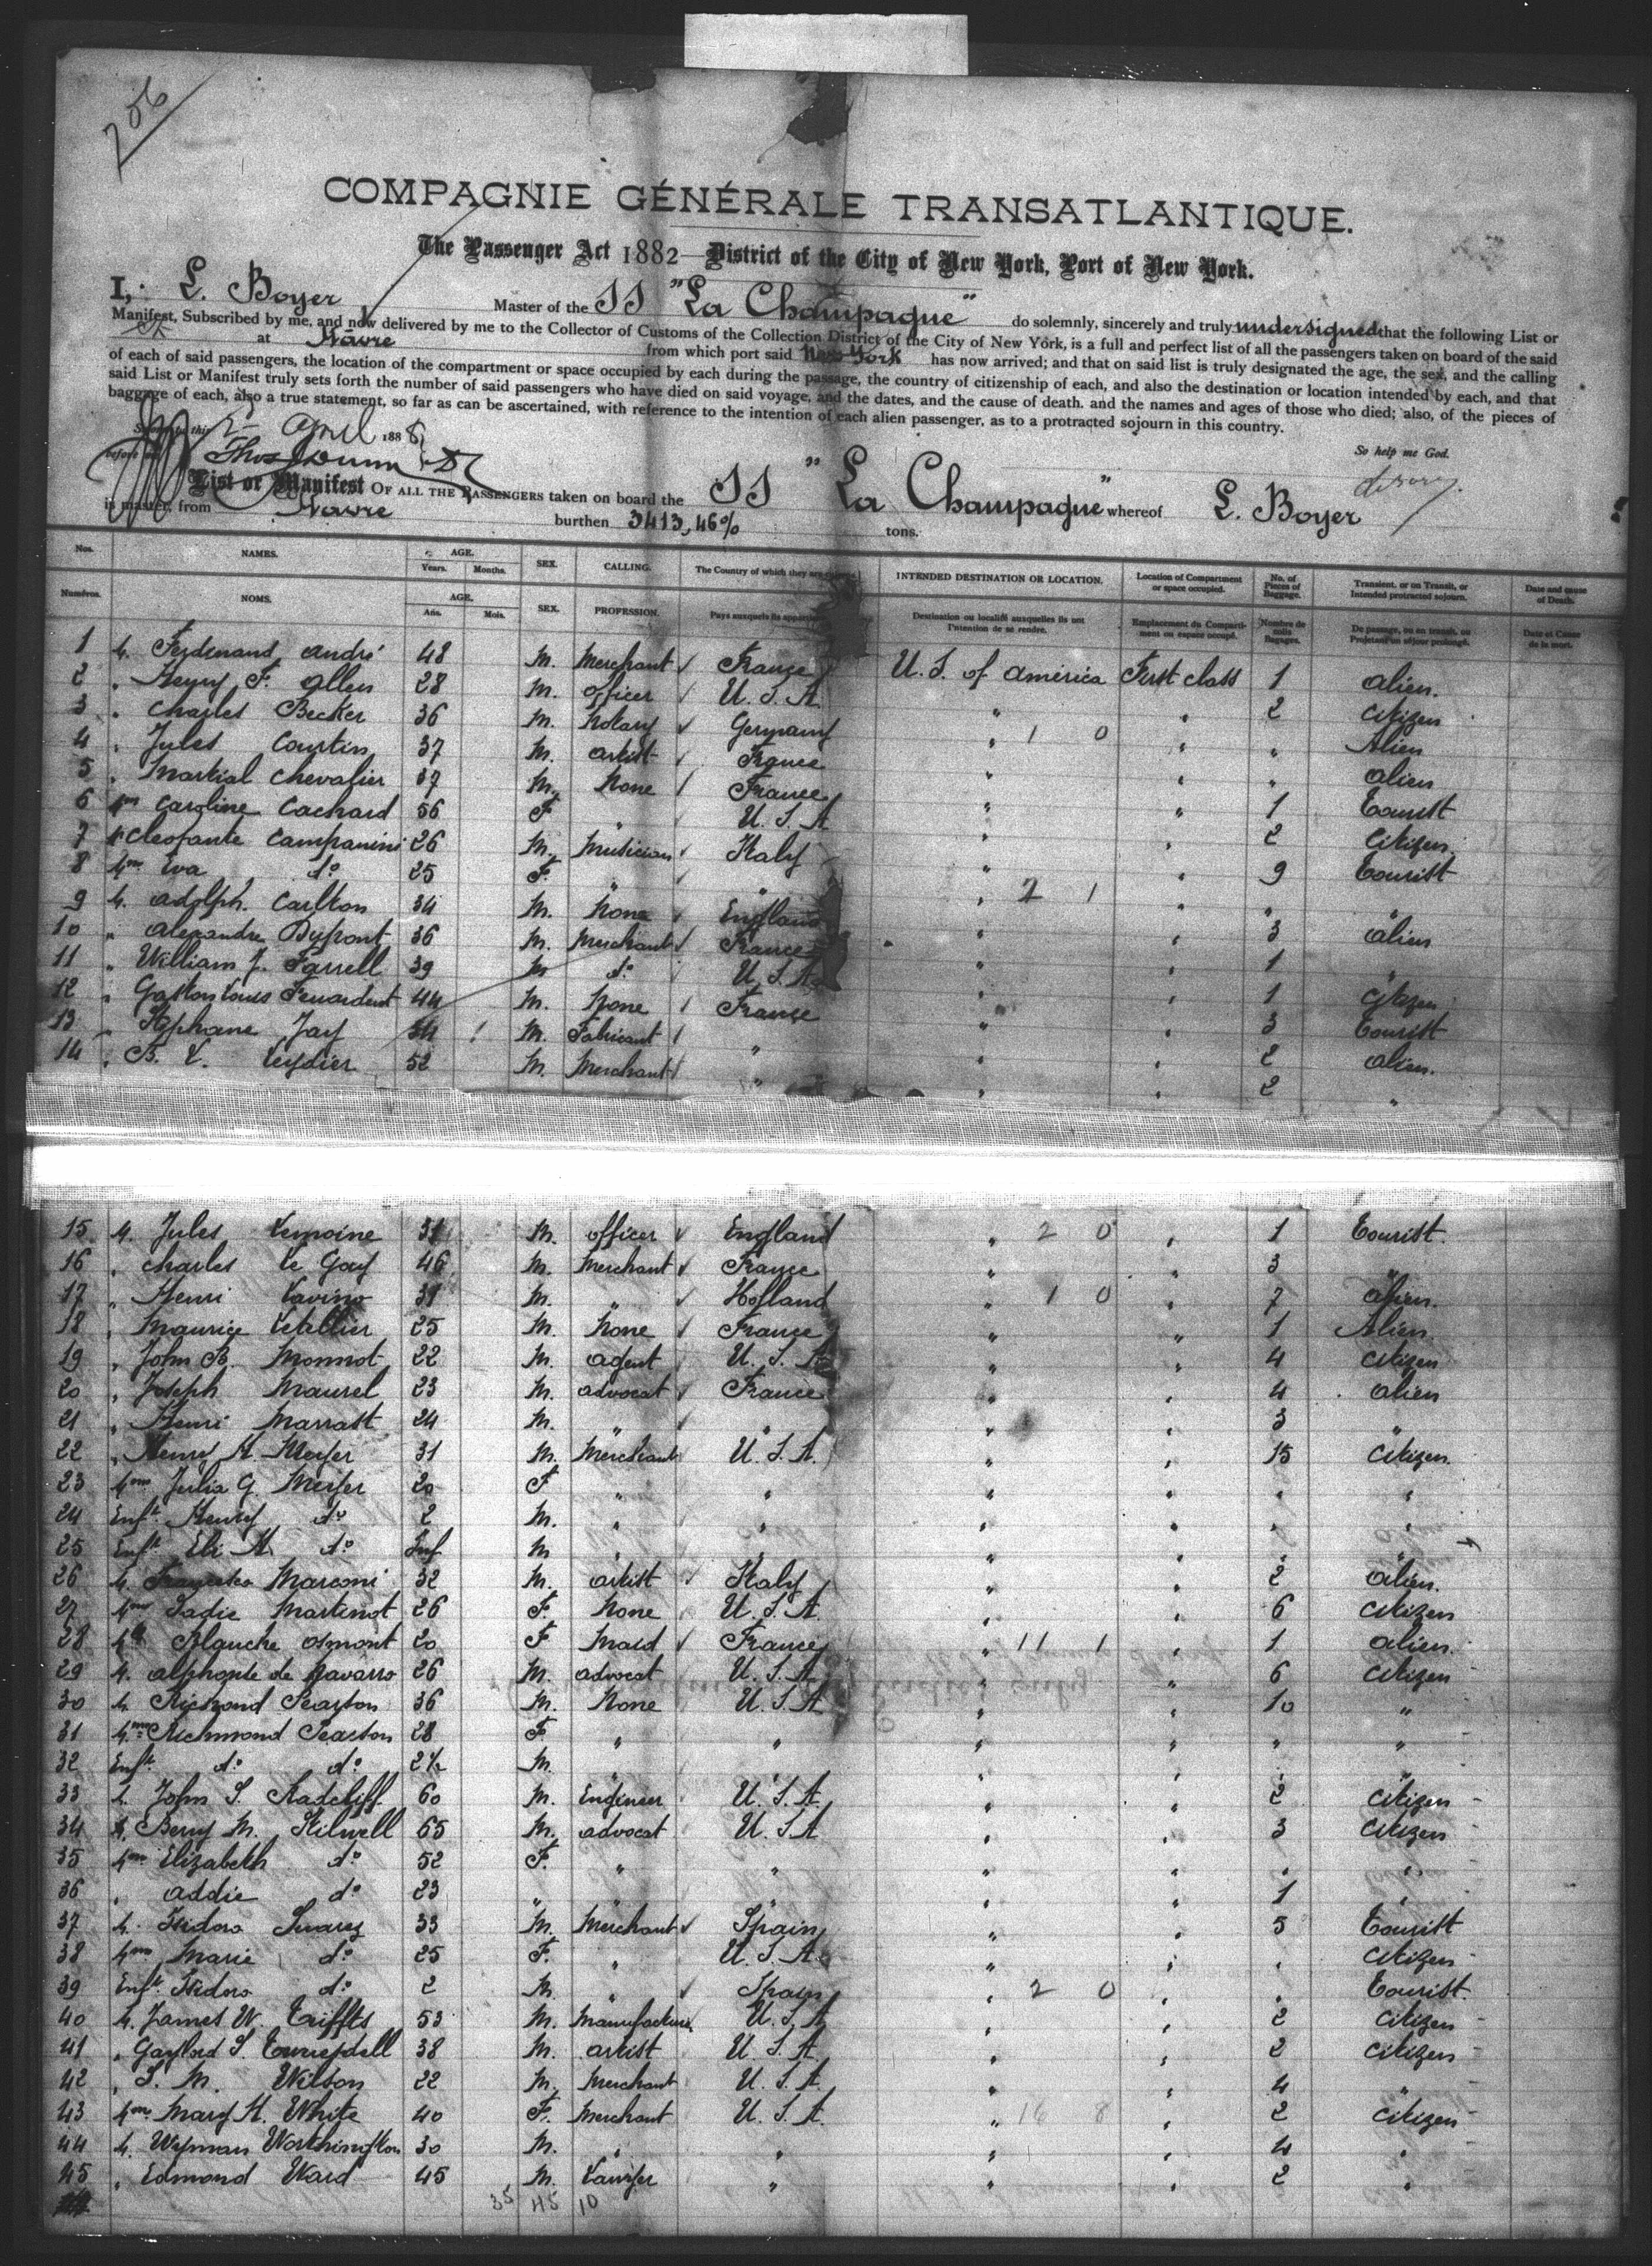 206
COMPAGNIE GÉNÉRALE TRANSATLANTIQUE.
The Passenger Act 1882—District of the City of New York, Port of New York.
I, L. Boyer Master of the SS "La Champagne" do solemnly, sincerely and truly undersigned that the following List or
Manifest, Subscribed by me, and now delivered by me to the Collector of Customs of the Collection District of the City of New York, is a full and perfect list of all the passengers taken on board of the said
at Havre from which port said New York has now arrived; and that on said list is truly designated the age, the sex, and the calling
of each of said passengers, the location of the compartment or space occupied by each during the passage, the country of citizenship of each, and also the destination or location intended by each, and that
said List or Manifest truly sets forth the number of said passengers who have died on said voyage, and the dates, and the cause of death. and the names and ages of those who died; also, of the pieces of
baggage of each, also a true statement, so far as can be ascertained, with reference to the intention of each alien passenger, as to a protracted sojourn in this country.
this April 1888
before So help me God.
List or Manifest OF ALL THE PASSENGERS taken on board the SS "La Champagne" whereof L. Boyer
is master, from Havre burthen 3413,46% tons.
Nos. NAMES. AGE. Years. Months. SEX. CALLING. The Country of which they are INTENDED DESTINATION OR LOCATION. Location of Compartment or space occupied. No. of Pieces of Baggage. Transient, or on Transit, or Intended protracted sojourn. Date and cause of Death.
Numéros. NOMS. AGE. Ans. Mois. SEX. PROFESSION. Pays auxquels ils Destination ou localité auxquelles ils ont l'intention de se rendre. Emplacement du Comparti-ment ou espace occupé. Nombre de colis Bagages. De passage, ou en transit, ou Projetant un séjour prolongé. Date et Cause de la mort.
1 M. Ferdinand André 48 M. Merchant France U.S. of America First class 1 alien.
2 " Henry F. Allen 28 M. officer U.S.A. " " 2 Citizen
3 " Charles Becker 36 M. Notary Germany " 1 0 " " Alien
4 " Jules Courtin 37 M. artist France " " " alien
5 " Martial Chevalier 37 M. None France " " 1 Tourist
6 Mme Caroline Cachard 56 F " U.S.A. " " 2 Citizen.
7 M Cleofante Campanini 26 M. Musician Italy " " 9 Tourist
8 Mme Eva do 25 F. " " " 2 1 " " "
9 M. Adolph. Carlton 34 M. None England " " 3 alien
10 " Alexandre Dupont 36 M. Merchant France " " 1 "
11 " William J. Farrell 39 M do U.S.A. " " 1 Citizen
12 " Gaston Louis Feuardent 44 M. None France " " 3 Tourist
13 " Stephane Jay 54 M. Fabricant " " " 2 alien.
14 " B. L. Leydier 52 M. Merchant " " " 2 "
15 M. Jules Lemoine 31 M. officer England " 2 0 " 1 Tourist.
16 " Charles Le Gay 46 M. Merchant France " " 3 "
17 " Henri Lavino 31 M. " Holland " 1 0 " 7 alien.
18 " Maurice Letellier 25 M. None France " " 1 Alien
19 " John B. Monnot 22 M. agent U.S.A " " 4 Citizen
20 " Joseph Maurel 23 M. advocat France " " 4 alien
21 " Henri Marrast 24 M. " " " " 3 "
22 " Henry H. Meyer 31 M. Merchant U.S.A. " " 15 Citizen.
23 Mme Julia G. Meyer 20 F " " " " " "
24 Enft Henry do 2 M. " " " " " "
25 Enft Eli H. do Inf M " " " " " "
26 M. Francesco Marconi 32 M. artist Italy " " 2 alien.
27 Mme Sadie Martinot 26 F. None U.S.A. " " 6 Citizen
28 Mlle Blanche Osmont 20 F Maid France " 11 1 " 1 alien.
29 M. Alphonse de Navarro 26 M. advocat U.S.A " " 6 Citizen
30 M. Richmond Pearson 36 M. None U.S.A " " 10 "
31 Mme Richmond Pearson 28 F. " " " " " "
32 Enft do do 2½ M. " " " " " "
33 M. John S. Radcliff 60 M. Engineer U.S.A. " " 2 Citizen
34 M. Berry M. Stilwell 65 M. advocat U.S.A " " 3 Citizen
35 Mme Elizabeth do 52 F. " " " " " "
36 " Addie do 23 " " " " " 1 "
37 M. Isidoro Suarez 33 M. Merchant Spain " " 5 Tourist
38 Mme Marie do 25 F. " U.S.A. " " " Citizen
39 Enft Isidoro do 2 M. " Spain " 2 0 " " Tourist.
40 M. James W. Triffts 53 M. Manufacturer U.S.A " " 2 Citizen
41 " Gaylord S. Truesdell 38 M. artist U.S.A. " " 2 Citizen
42 " S. M. Wilson 22 M. Merchant U.S.A. " " 4 "
43 Mme Mary H. White 40 F. Merchant U.S.A. " 16 8 " 2 Citizen
44 M. Wyman Worthington 30 M. " " " " 4 "
45 " Edmond Ward 45 M. Lawyer " " " 2 "
35 45 10